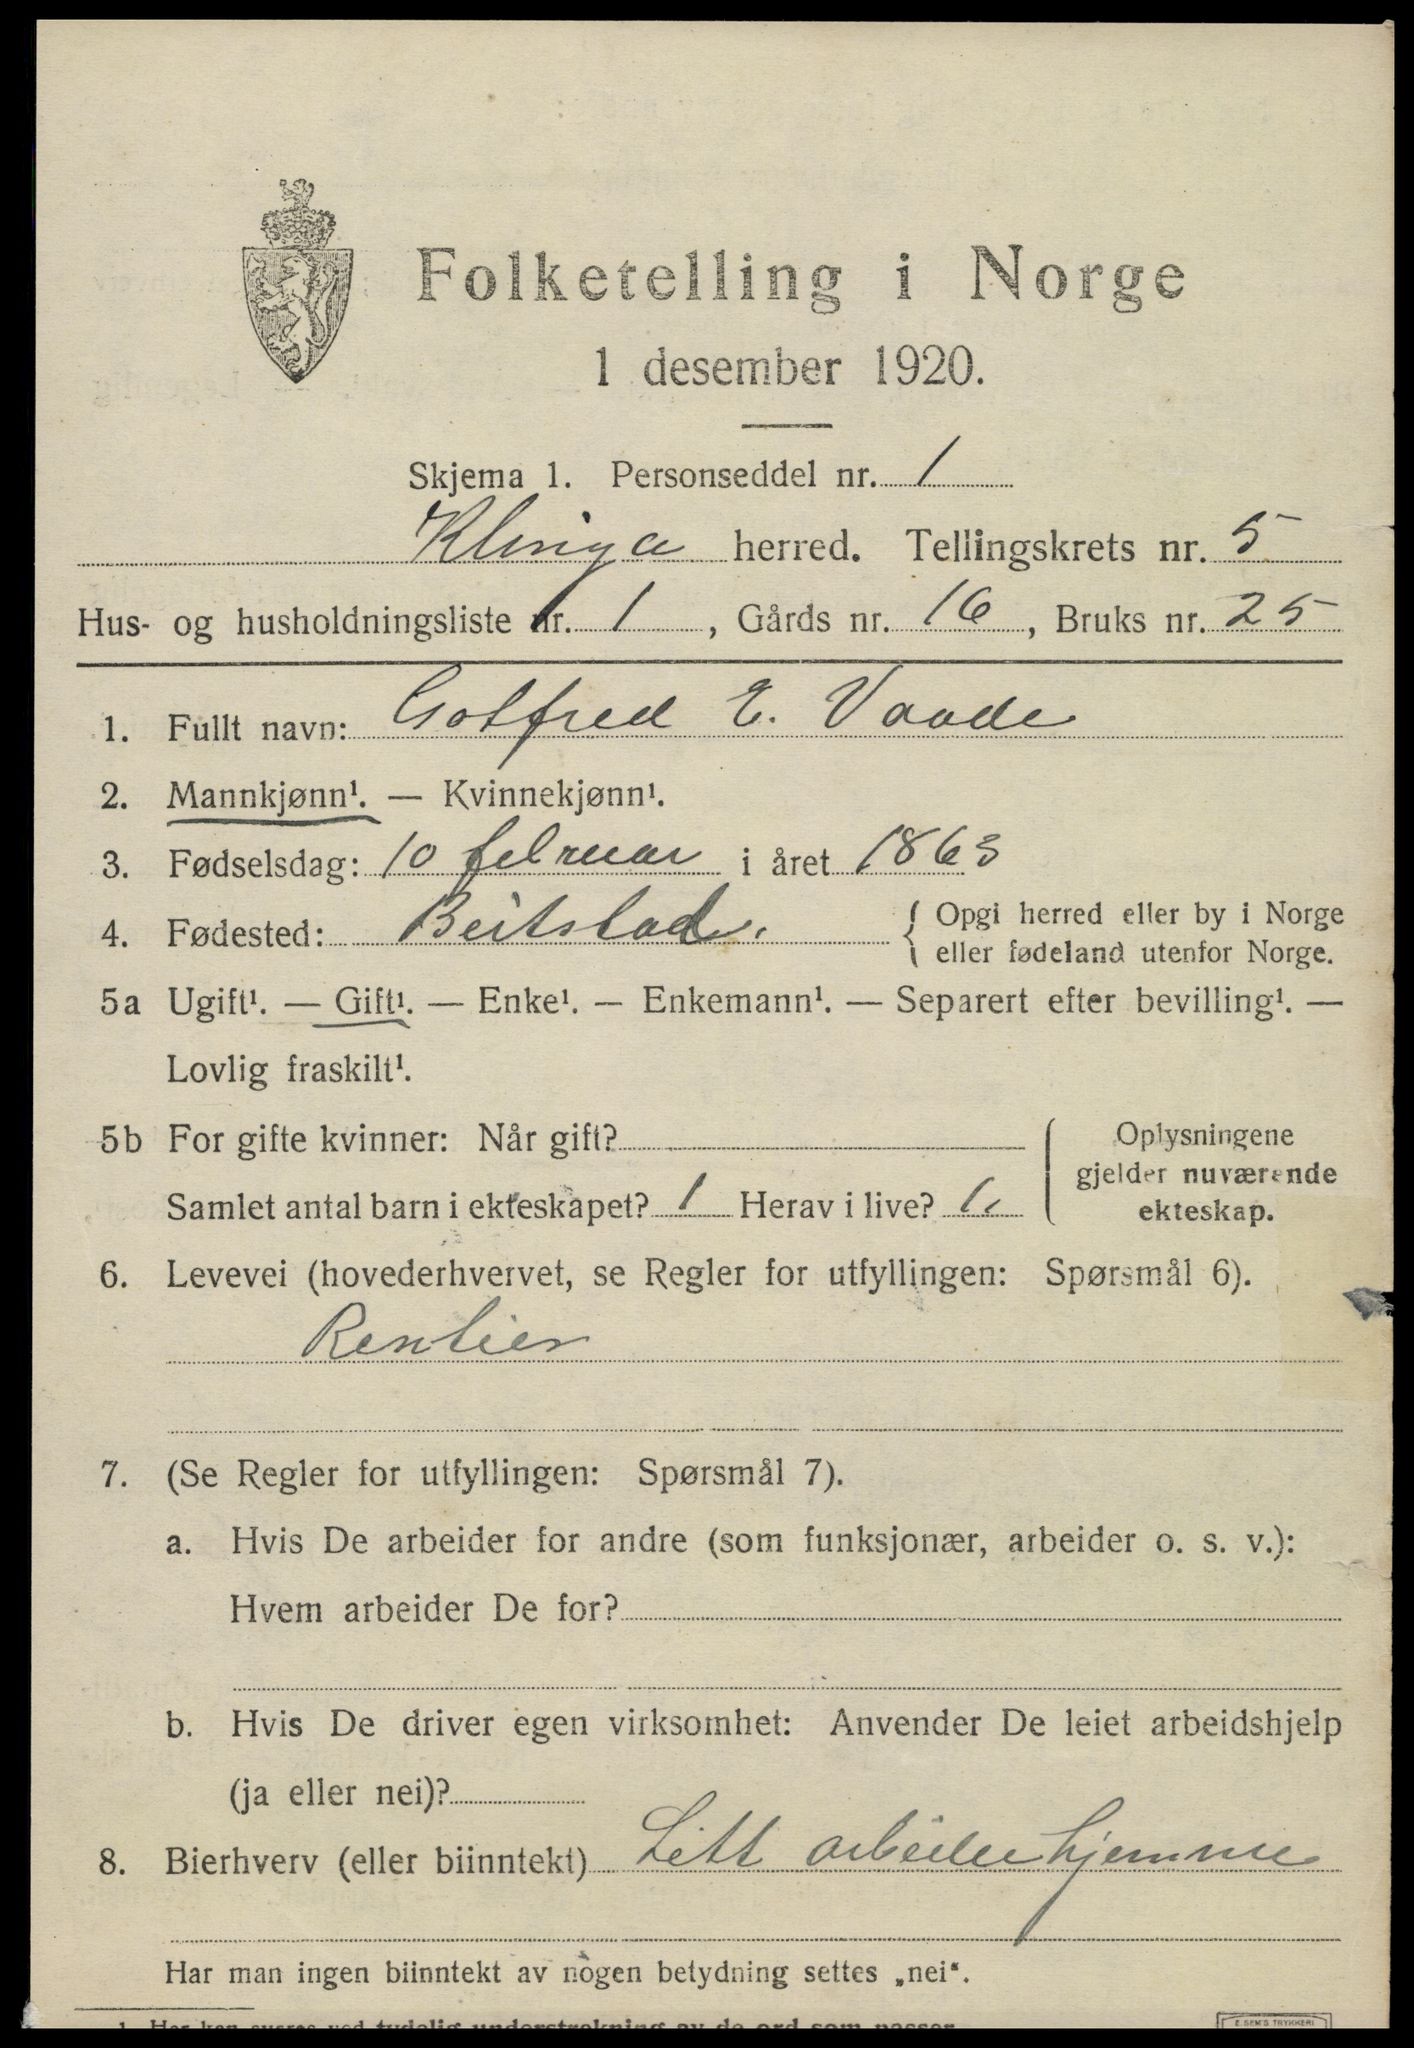 Folketelling i Norge
1 desember 1920.
Skjema 1. Personseddel nr. 1
Klinga herred. Tellingskrets nr. 5
Hus- og husholdningsliste nr. 1, Gårds nr. 16, Bruks nr. 25
1. Fullt navn: Gotfred E. Vaade
2. Mannkjønn¹. — Kvinnekjønn¹.
3. Fødselsdag: 10 februar i året 1863
4. Fødested: Beitstad. { Opgi herred eller by i Norge
eller fødeland utenfor Norge.
5a Ugift¹. — Gift¹. — Enke¹. — Enkemann¹. — Separert efter bevilling¹. —
Lovlig fraskilt¹.
5b For gifte kvinner: Når gift?
Samlet antal barn i ekteskapet? 1 Herav i live? 1.
Oplysningene
gjelder nuværende
ekteskap.
6. Levevei (hovederhvervet, se Regler for utfyllingen: Spørsmål 6).
Rentier
7. (Se Regler for utfyllingen: Spørsmål 7).
a. Hvis De arbeider for andre (som funksjonær, arbeider o. s. v.):
Hvem arbeider De for?
b. Hvis De driver egen virksomhet: Anvender De leiet arbeidshjelp
(ja eller nei)?
8. Bierhverv (eller biinntekt) Litt arbeide hjemme
Har man ingen biinntekt av nogen betydning settes „nei“.
1 Her kan svares ved tydelig understrekning av de ord som passer.
E. SEM'S TRYKKERI